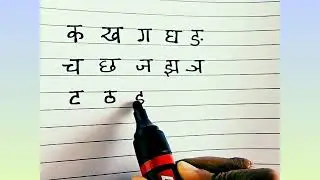 क ख ग घ ङ
च छ ज झ ञ
ट ठ